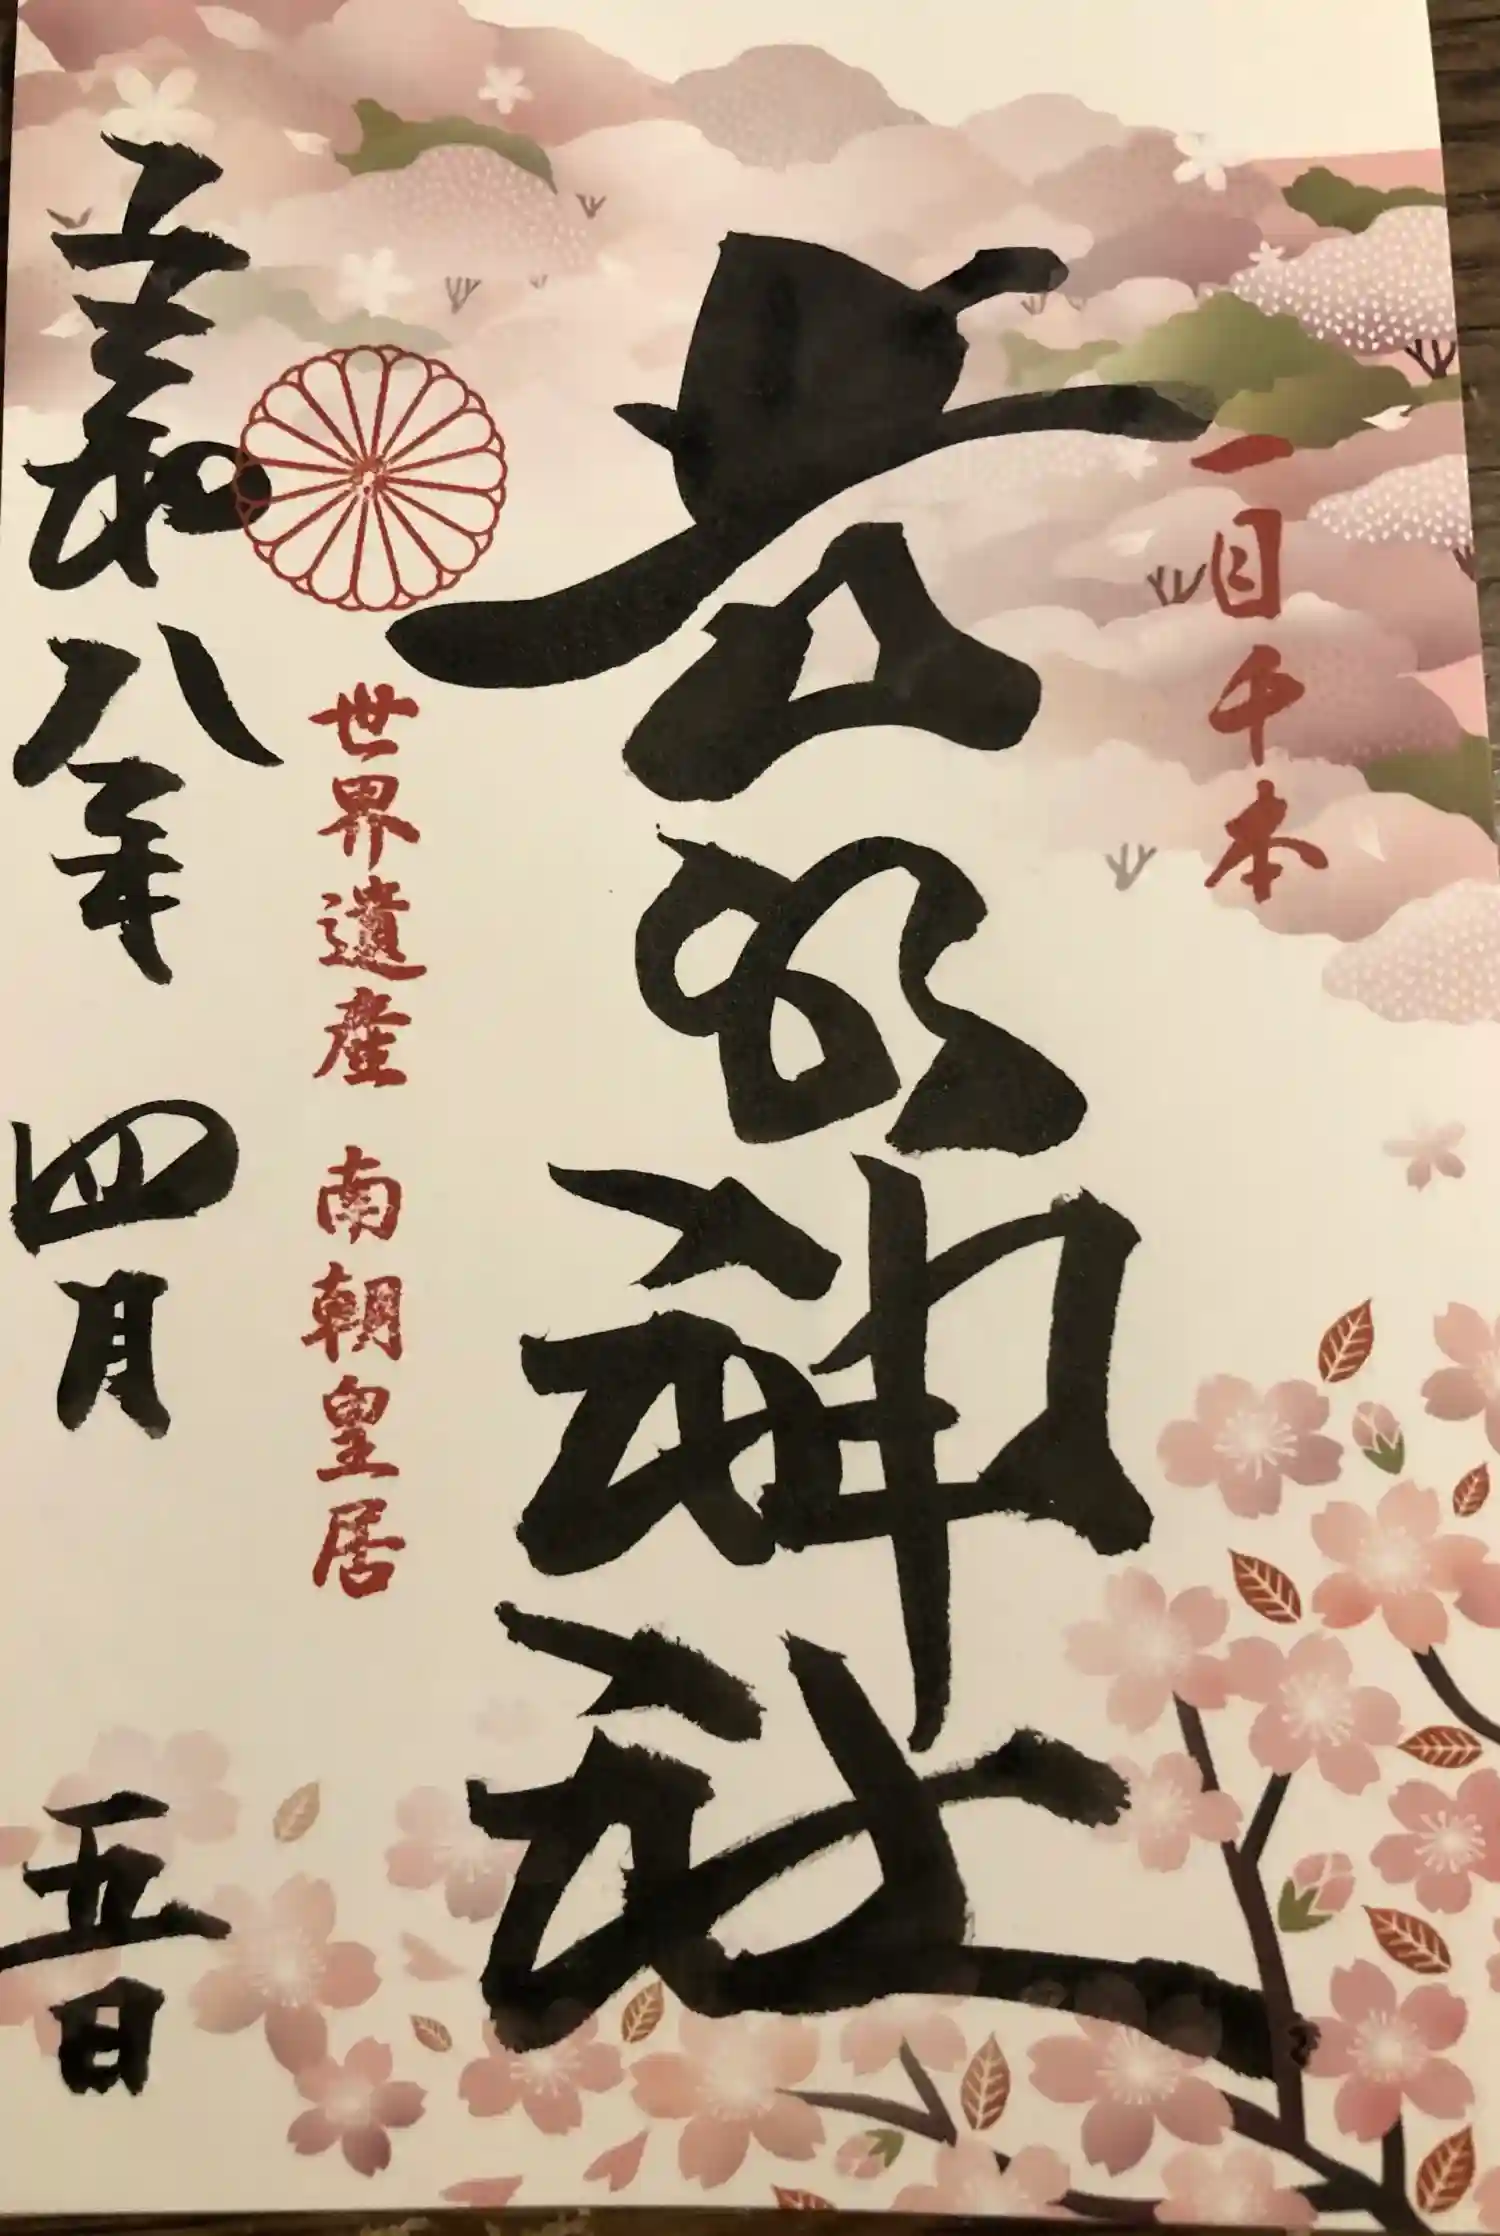 一目千本
吉水神社
世界遺産 南朝皇居
令和八年 四月 五日